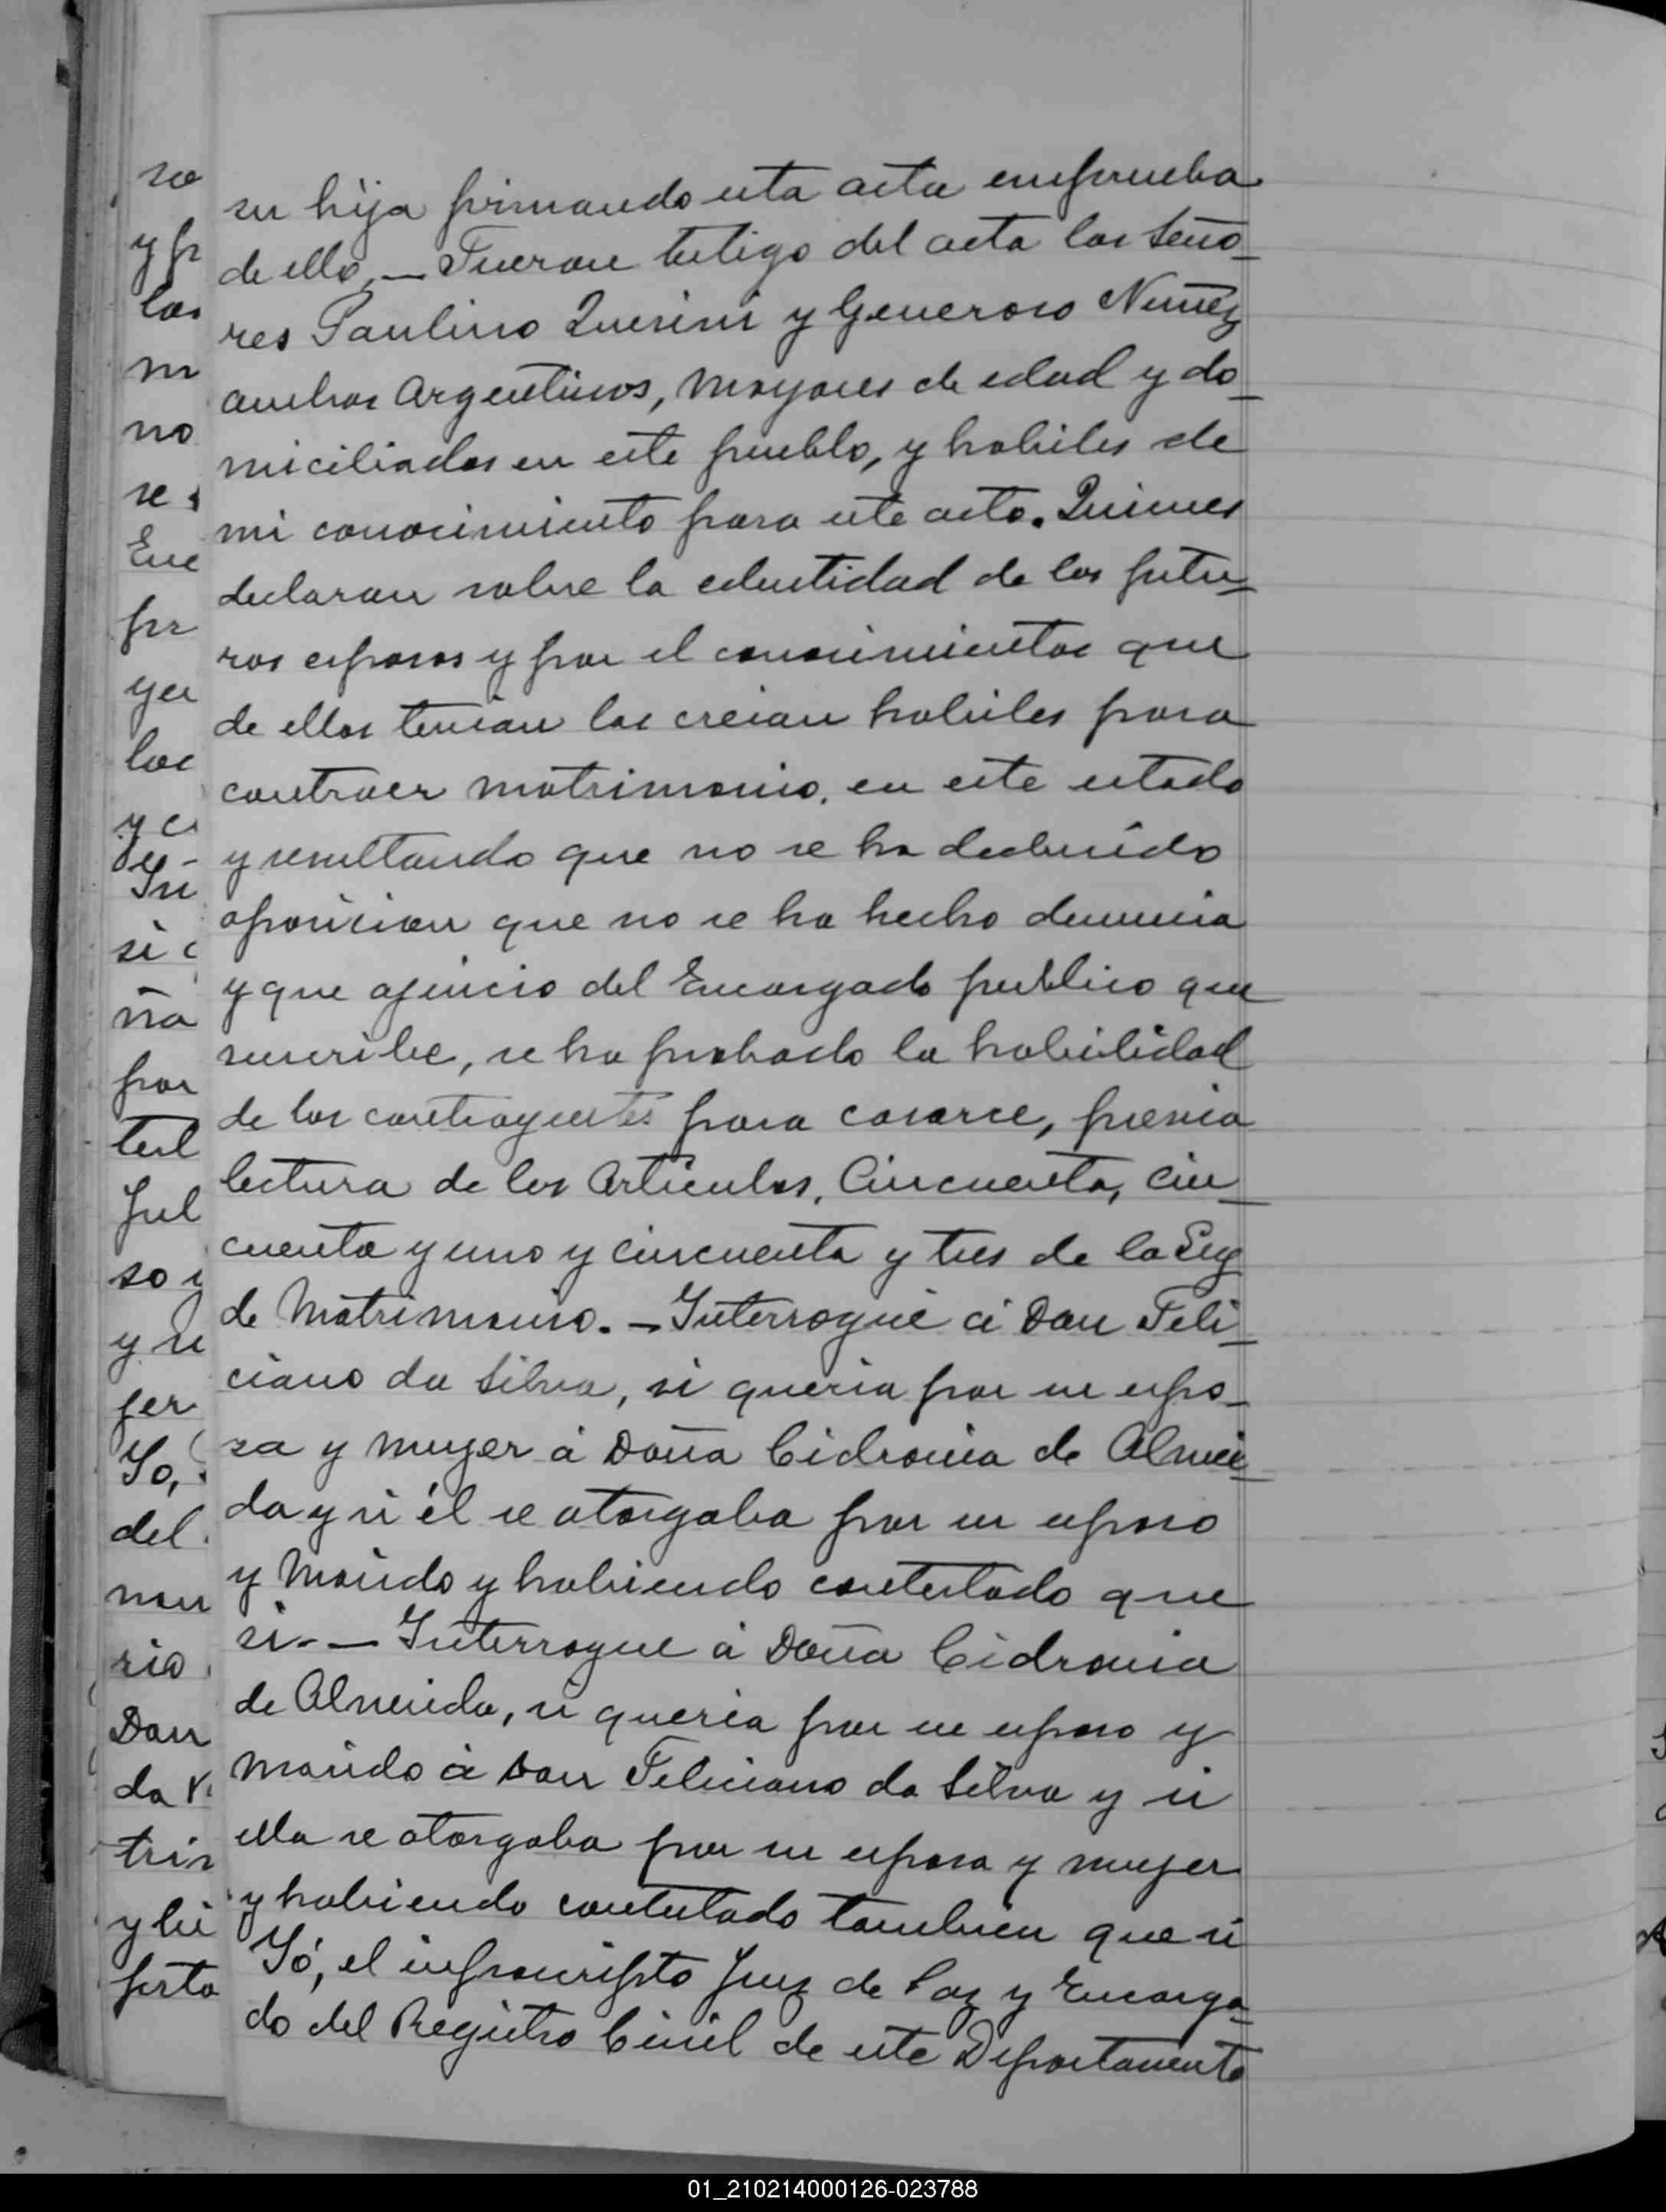 su hija firmando esta acta en prueba
de ello. — Fueron testigo del acta los Seño_
res Paulino Quirini y Generoso Nuñez
ambos Argentinos, mayores de edad y do_
miciliados en este pueblo, y habiles de
mi conocimiento para este acto. Quienes
declaran sobre la edentidad de los futu_
ros esposos y por el conocimientos que
de ellos tenian los creian habiles para
contraer matrimonio. en este estado
y resultando que no se ha deducido
oposicion que no se ha hecho denuncia
y que ajuicio del Encargado publico que
suscribe, se ha probado la habilidad
de los contrayentes para casarce, previa
lectura de los Articulos, Cincuenta, cin_
cuenta y uno y cincuenta y tres de la Ley
de Matrimonio. — Interrogué á Don Feli_
ciano da Silva, si queria por su espo_
sa y mujer á Doña Cidronia de Almei_
da y si él se otorgaba por su esposo
y Marido y habiendo contestado que
si. — Interrogue á Doña Cidronia
de Almeida, si queria por su esposo y
marido á Don Feliciano da Silva y si
ella se otorgaba por su esposa y mujer
y habiendo contestado tambien que si
Yó, el infrascripto Juez de Paz y Encarga_
do del Registro Civil de este Departamento
01_210214000126-023788